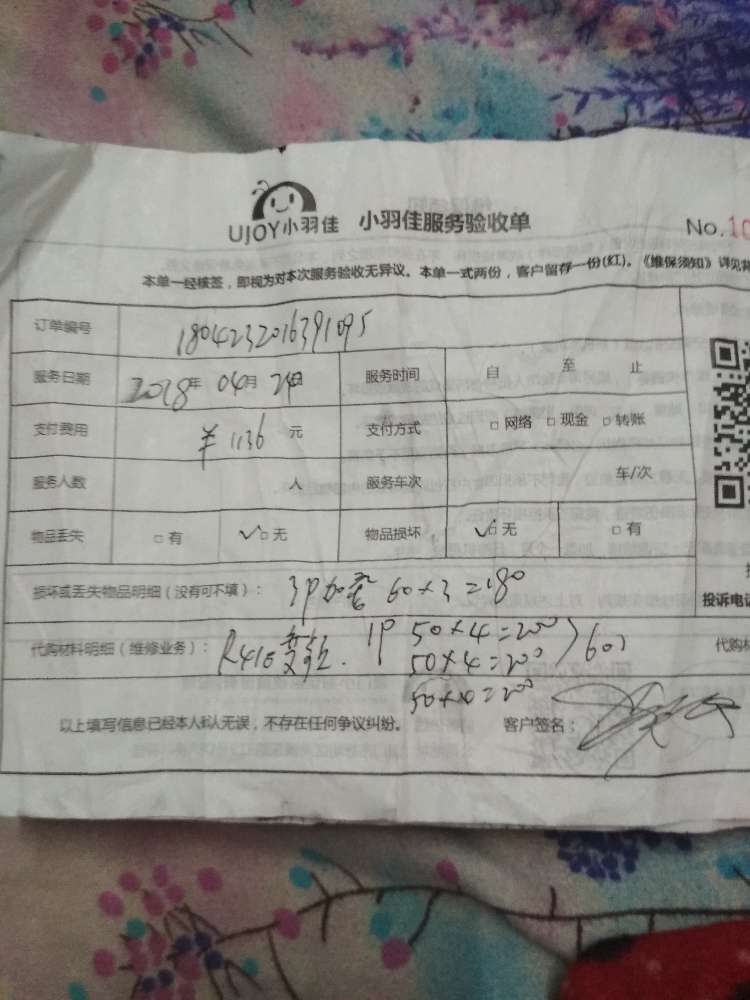 UJOY小羽佳 小羽佳服务验收单 No.10
本单一经核签，即视为对本次服务验收无异议。本单一式两份，客户留存一份(红)。《维保须知》详见背
订单编号 1804232016391095
服务日期 2018年 04月 24日 服务时间 自 至 止
支付费用 ¥1136 元 支付方式 □网络 □现金 □转账
服务人数 人 服务车次 车/次
物品丢失 □有 ✓□无 物品损坏 ✓□无 □有
损坏或丢失物品明细（没有可不填）： 3P加 60×3=180
投诉电话
代购材料明细（维修业务）： R410 1P 50×4=200
50×4=200
代购材
=200
以上填写信息已经本人确认无误，不存在任何争议纠纷。 客户签名：